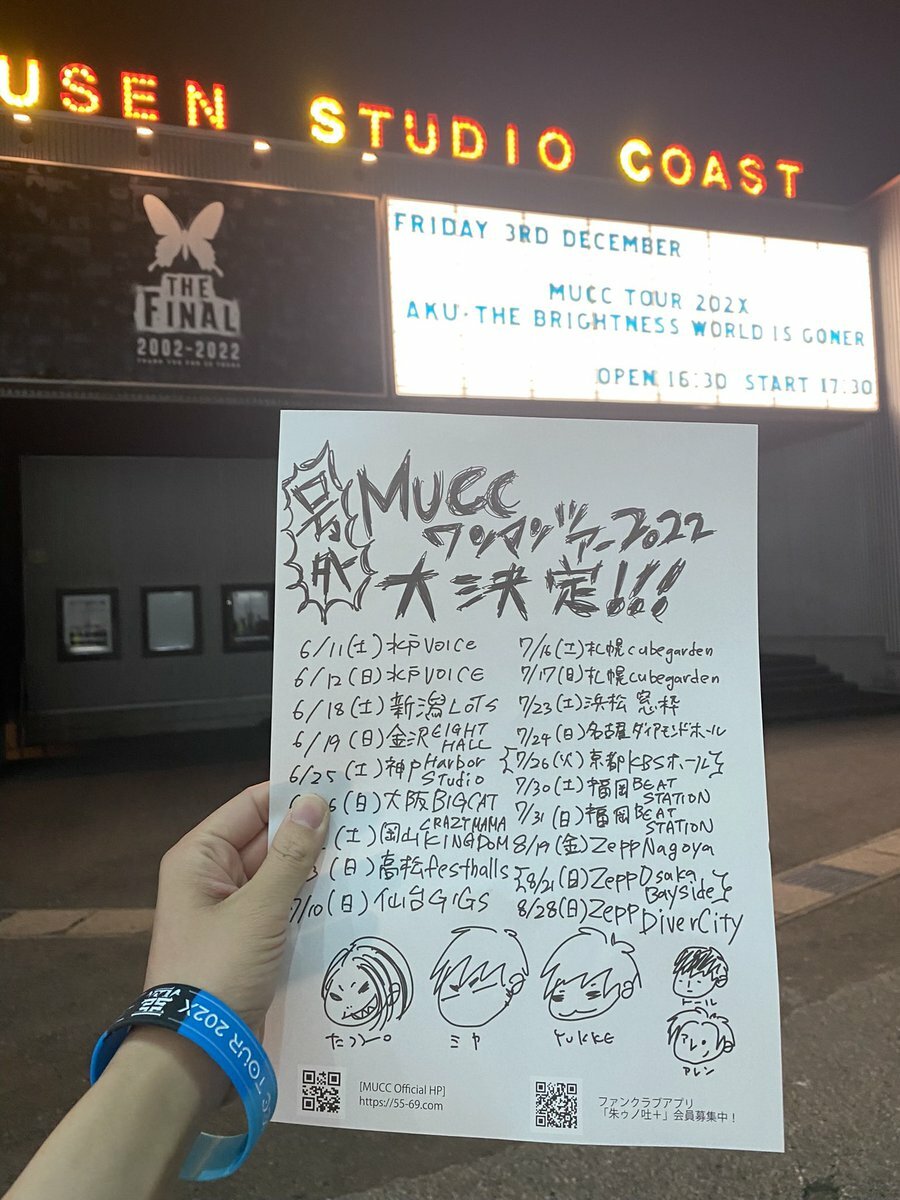 USEN STUDIO COAST
THE
FINAL
2002-2022
FRIDAY 3RD DECEMBER
MUCC TOUR 202X
AKU-THE BRIGHTNESS WORLD IS GONER
OPEN 16:30 START 17:30
号外
MUCC
ワンマンツアー2022
大決定!!!
6/11(土)水戸VOICE
6/12(日)水戸VOICE
6/18(土)新潟LOTS
6/19(日)金沢EIGHT HALL
6/25(土)神戸Harbor Studio
6(日)大阪BIGCAT
(土)岡山CRAZYMAMA KINGDOM
3(日)高松festhalle
7/10(日)仙台GIGS
7/16(土)札幌cubegarden
7/17(日)札幌cubegarden
7/23(土)浜松 窓枠
7/24(日)名古屋ダイアモンドホール
7/26(火)京都KBSホール
7/30(土)福岡BEAT STATION
7/31(日)福岡BEAT STATION
8/19(金)Zepp Nagoya
8/21(日)Zepp Osaka Bayside
8/28(日)Zepp DiverCity
ミヤ
YUKKE
トール
アレン
アレン
[MUCC Official HP]
https://55-69.com
ファンクラブアプリ
「朱ゥノ吐+」会員募集中！
TOUR 202X